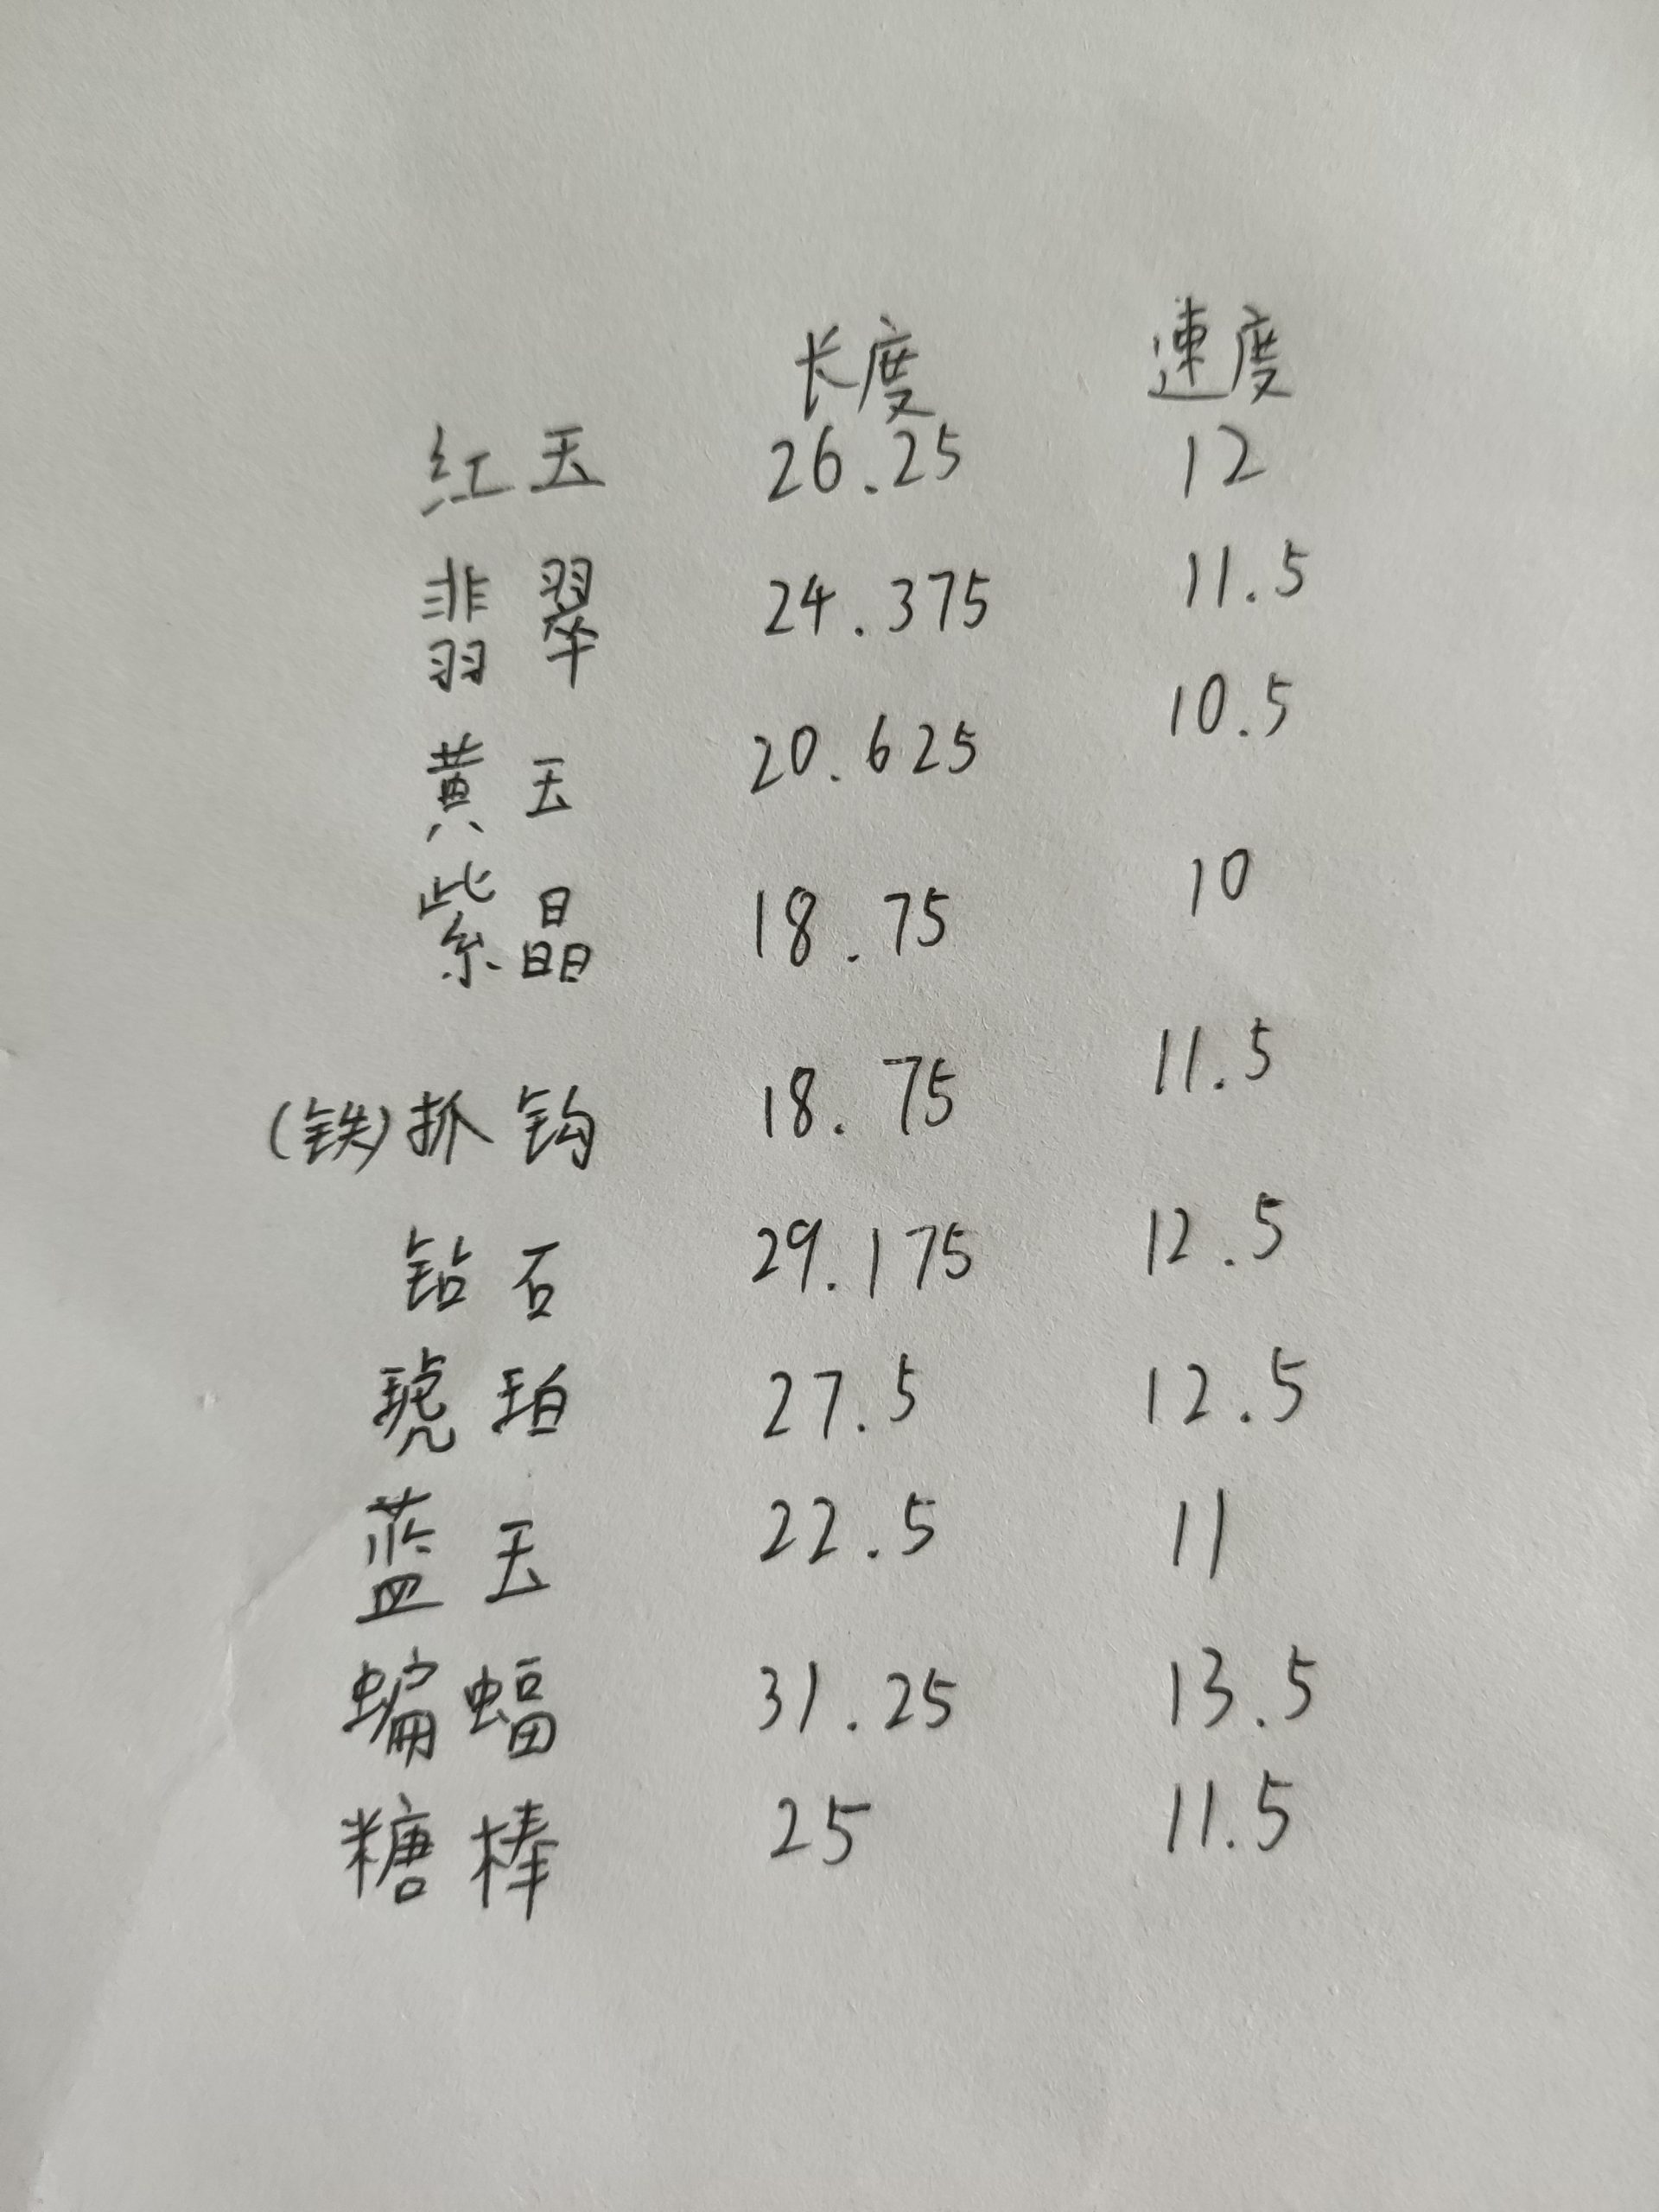 长度 速度
红玉 26.25 12
翡翠 24.375 11.5
黄玉 20.625 10.5
紫晶 18.75 10
(铁)抓钩 18.75 11.5
钻石 29.175 12.5
琥珀 27.5 12.5
蓝玉 22.5 11
蝙蝠 31.25 13.5
糖棒 25 11.5